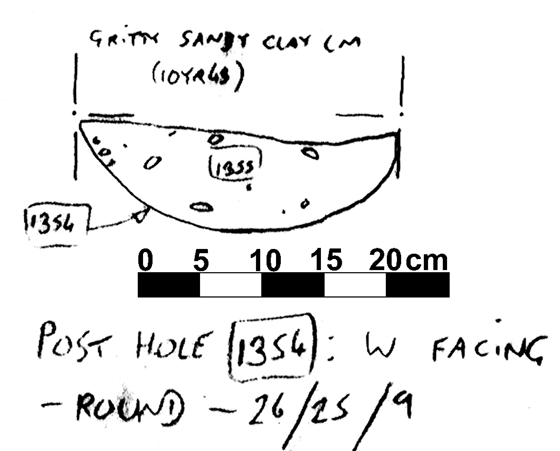 GRITTY SANDY CLAY LM
(10YR43)
1355
1354
0 5 10 15 20 cm
POST HOLE 1354: W FACING
- ROUND - 26/25/9